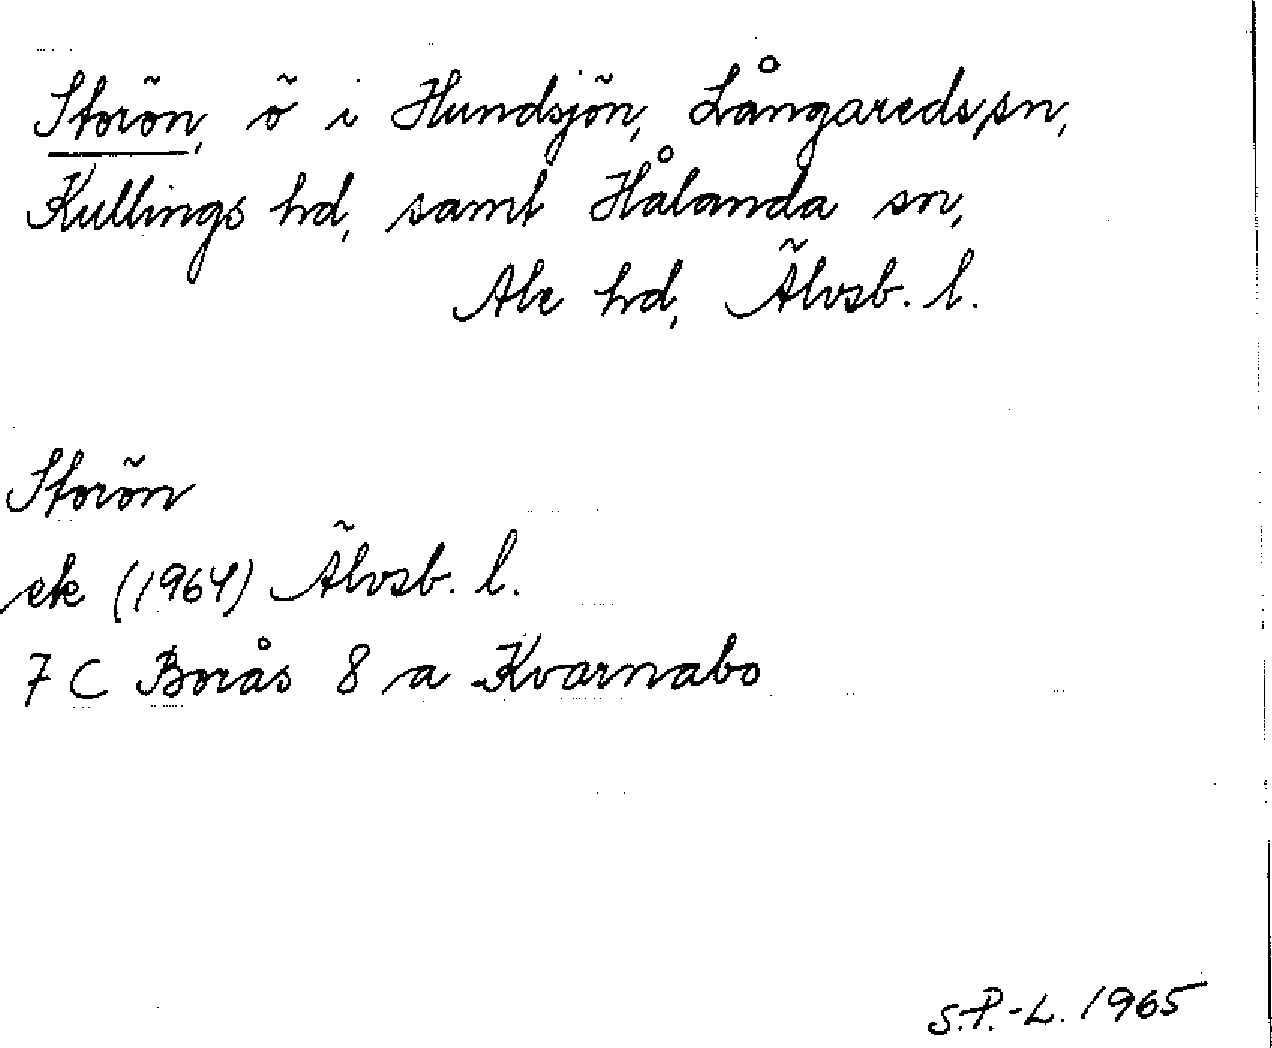 Storön, ö i Hundsjön, Långareds sn,
Kullings hd, samt Hålanda sn,
Ale hd, Älvsb. l.
Storön
ek (1964) Älvsb. l.
7 C Borås 8 a Kvarnabo
S.P.-L. 1965